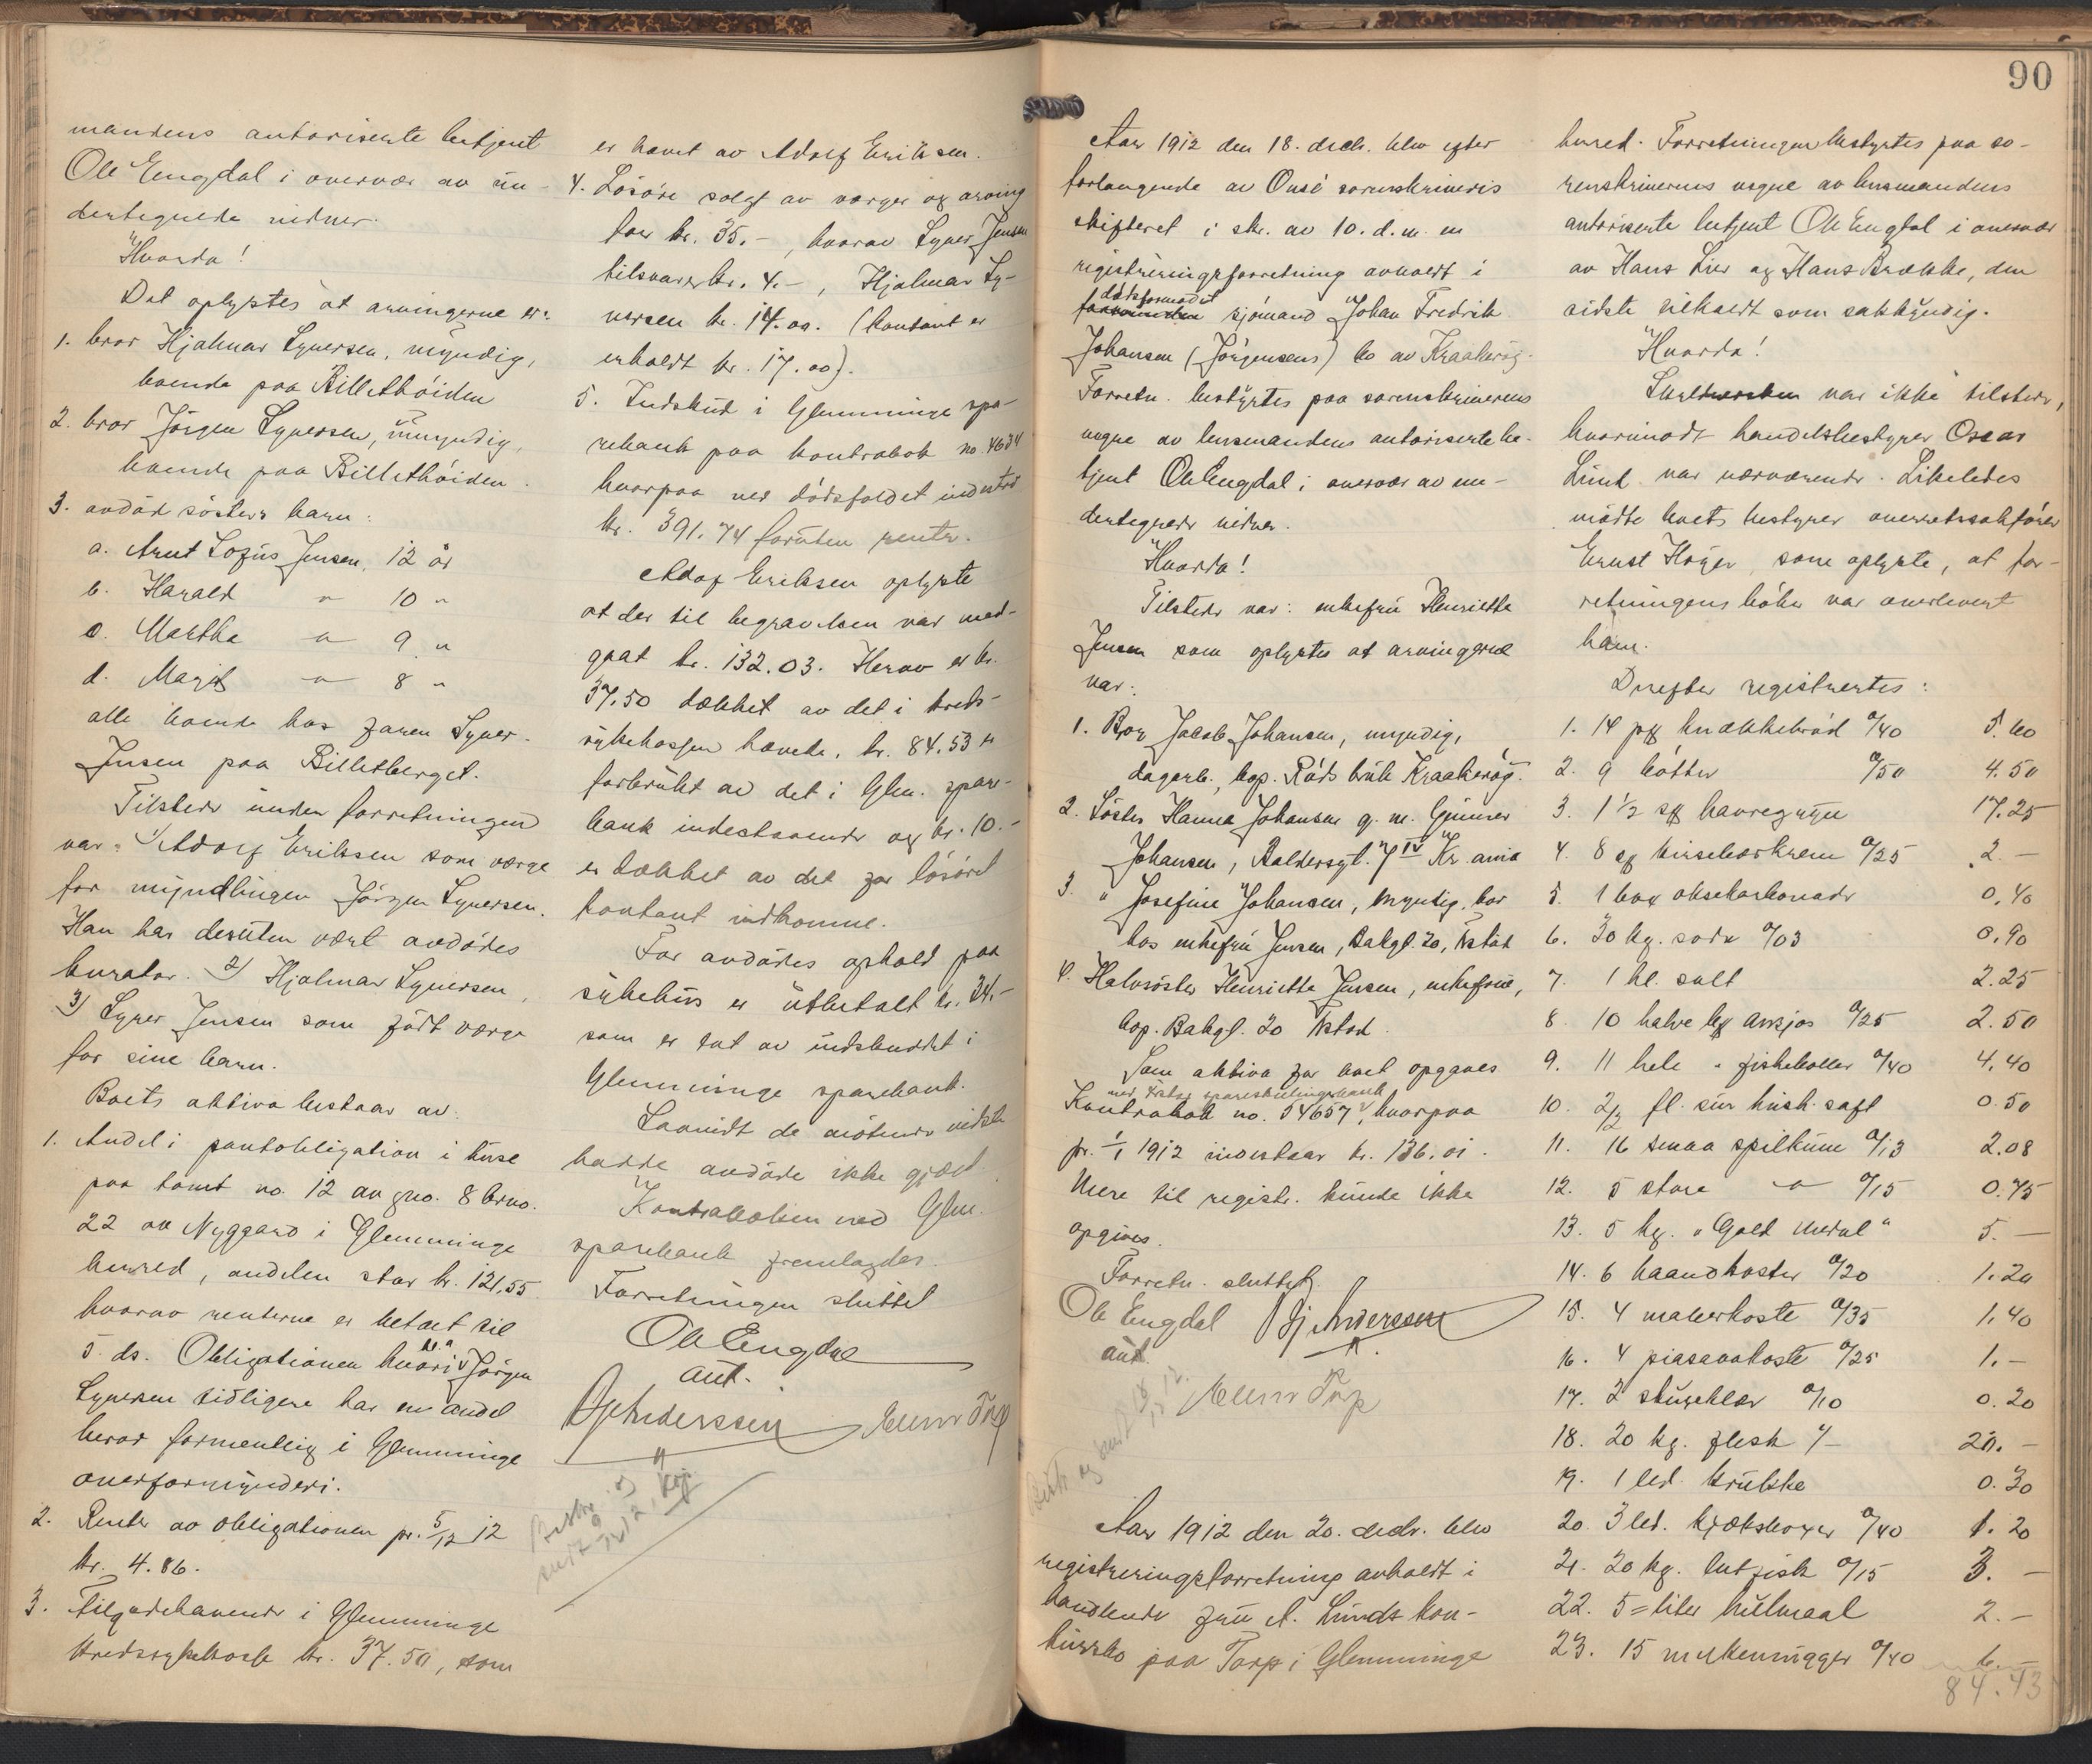 mandens autoriserte betjent
Ole Engdal i overvær av un-
dertegnede vidner.
Hvorda!
Det oplystes at arvingerne er:
1. bror Hjalmar Syversen, myndig,
boende paa Billethöiden
2. bror Jörgen Syversen, umyndig,
boende paa Billethöiden.
3. avdöd sösters barn:
a. Arnt Jensen, 12 år
b. Harald " 10 "
c. Marthe " 9 "
d. Margit " 8 "
alle boende hos faren Syver
Jensen paa Billetberget.
Tilstede under forretningen
var: 1) Adolf Eriksen som værge
for myndlingen Jörgen Syversen.
Han har desuten vært avdödes
kurator. 2) Hjalmar Syversen,
3) Syver Jensen som födt værge
for sine barn.
Boets aktiva bestaar av:
1. Andel i pantobligation i huse
paa tomt no. 12 av gno. 8 brno.
22 av Nygaard i Glemminge
herred, andelen stor kr. 121,55
hvorav renterne er betalt til
5. ds. Obligationen hvori bl.a. Jörgen
Syversen tidligere har en andel
beror formentlig i Glemminge
overformynderi.
2. Renter av obligationen pr. 5/12 12
kr. 4.86.
3. Tilgodehavende i Glemminge
kredssykekasse kr. 37.50, som
er hævet av Adolf Eriksen.
4. Lösöre solgt av værger og arving
for kr. 35.-, hvorav Syver Jensen
tilsvarer kr. 4.-, Hjalmar Sy-
versen kr. 14.00. (kontant er
erholdt kr. 17.00).
5. Indskud i Glemminge spa-
rebank paa kontrabok no. 4634
hvorpaa ved dödsfaldet indestod
kr. 391.74 foruten renter.
Adolf Eriksen oplyste
at der til begravelsen var med-
gaat kr. 132.03. Herav er kr.
37.50 dækket av det i kreds-
sykekassen hævede, kr. 84.53 er
forbrukt av det i Glem. spare-
bank indestaaende og kr. 10.-
er dækket av det for lösöret
kontant indkomne.
For avdödes ophold paa
sykehus er utbetalt kr. 24.-
som er tat av indskuddet i
Glemminge sparebank.
Saavidt de mötende vidste
hadde avdöde ikke gjæld.
Kontraboken ved Glem.
sparebank fremlagdes.
Forretningen sluttet
Ole Engdal
aut.
Bj Anderssen
90
Aar 1912 den 18. decb. blev efter
forlangende av Onsö sorenskriveris
skifteret i skr. av 10. d.m. en
registreringsforretning avholdt i
dödsformodet
sjömand Johan Fredrik
Johansen (Jörgensens) bo av Kraakeröy.
Forretn. bestyrtes paa sorenskriverens
vegne av lensmandens autoriserte be-
tjent Ole Engdal i overvær av un-
dertegnede vidner.
Hvorda!
Tilstede var: enkefru Henriette
Jensen som oplyste at arvingerne
var:
1. Bror Jacob Johansen, myndig,
dagarb., bop. Röds bruk Kraakeröy.
2. Söster Hanna Johansen g. m. Gunner
Johansen, Baldersgt. 7 IV Kr.ania
3. " Josefine Johansen, myndig, bor
hos enkefru Jensen, Bakgt. 20, Fstad
4. Halvsöster Henriette Jensen, enkefrue,
bop. Bakgt. 20 Fstad.
Som aktiva for boet opgaves
ved Fstad spareskillingsbank
Kontrabok no. 54657, hvorpaa
pr. 1/1 1912 indestaar kr. 136.01.
Mere til registr. kunde ikke
opgives.
Forretn. sluttet.
Ole Engdal Bj Anderssen
aut.
Aar 1912 den 20. decbr. blev
registreringsforretning avholdt i
handlende fru A. Lunds kon-
kursbo paa Torp i Glemminge
herred. Forretningen bestyrtes paa so-
renskriverens vegne av lensmandens
autoriserte betjent Ole Engdal i overvær
av Hans Lier og Hans Brække, den
sidste tilkaldt som sakkyndig.
Hvorda!
var ikke tilstede,
hvorimot handelsbestyrer Oscar
Lund var nærværende. Likeledes
mödte boets bestyrer overretssakförer
Ernst Höyer, som oplyste, at for-
retningens böker var overlevert
ham.
Derefter registrertes:
1. 14 pk knækkebröd a/40 5.60
2. 9 bötter a/50 4.50
3. 1 1/2 sk havregryn 17.25
4. 8 kirsebærkrem a/25 2.-
5. 1 box oksekarbonade 0,40
6. 30 kg. soda a/03 0,90
7. 1 hl. salt 2.25
8. 10 halve bx ansjos a/25 2.50
9. 11 hele " fiskeboller a/40 4,40
10. 2/2 fl. sur hush. saft 0.50
11. 16 smaa spilkum a/13 2.08
12. 5 store " a/15 0.75
13. 5 kg. "Gold Medal" 5.-
14. 6 haandkoster a/20 1.20
15. 4 malerkoste a/35 1,40
16. 4 piasavakoste a/25 1.-
17. 2 skureklær a/10 0.20
18. 20 kg. flesk 1/- 20.-
19. 1 led. krukke 0.30
20. 3 led. kjökskoper a/40 1.20
21. 20 kg. lutfisk a/15 3.-
22. 5=liter hulmaal 2.-
23. 15 melkemugger a/40 6.-
84.43